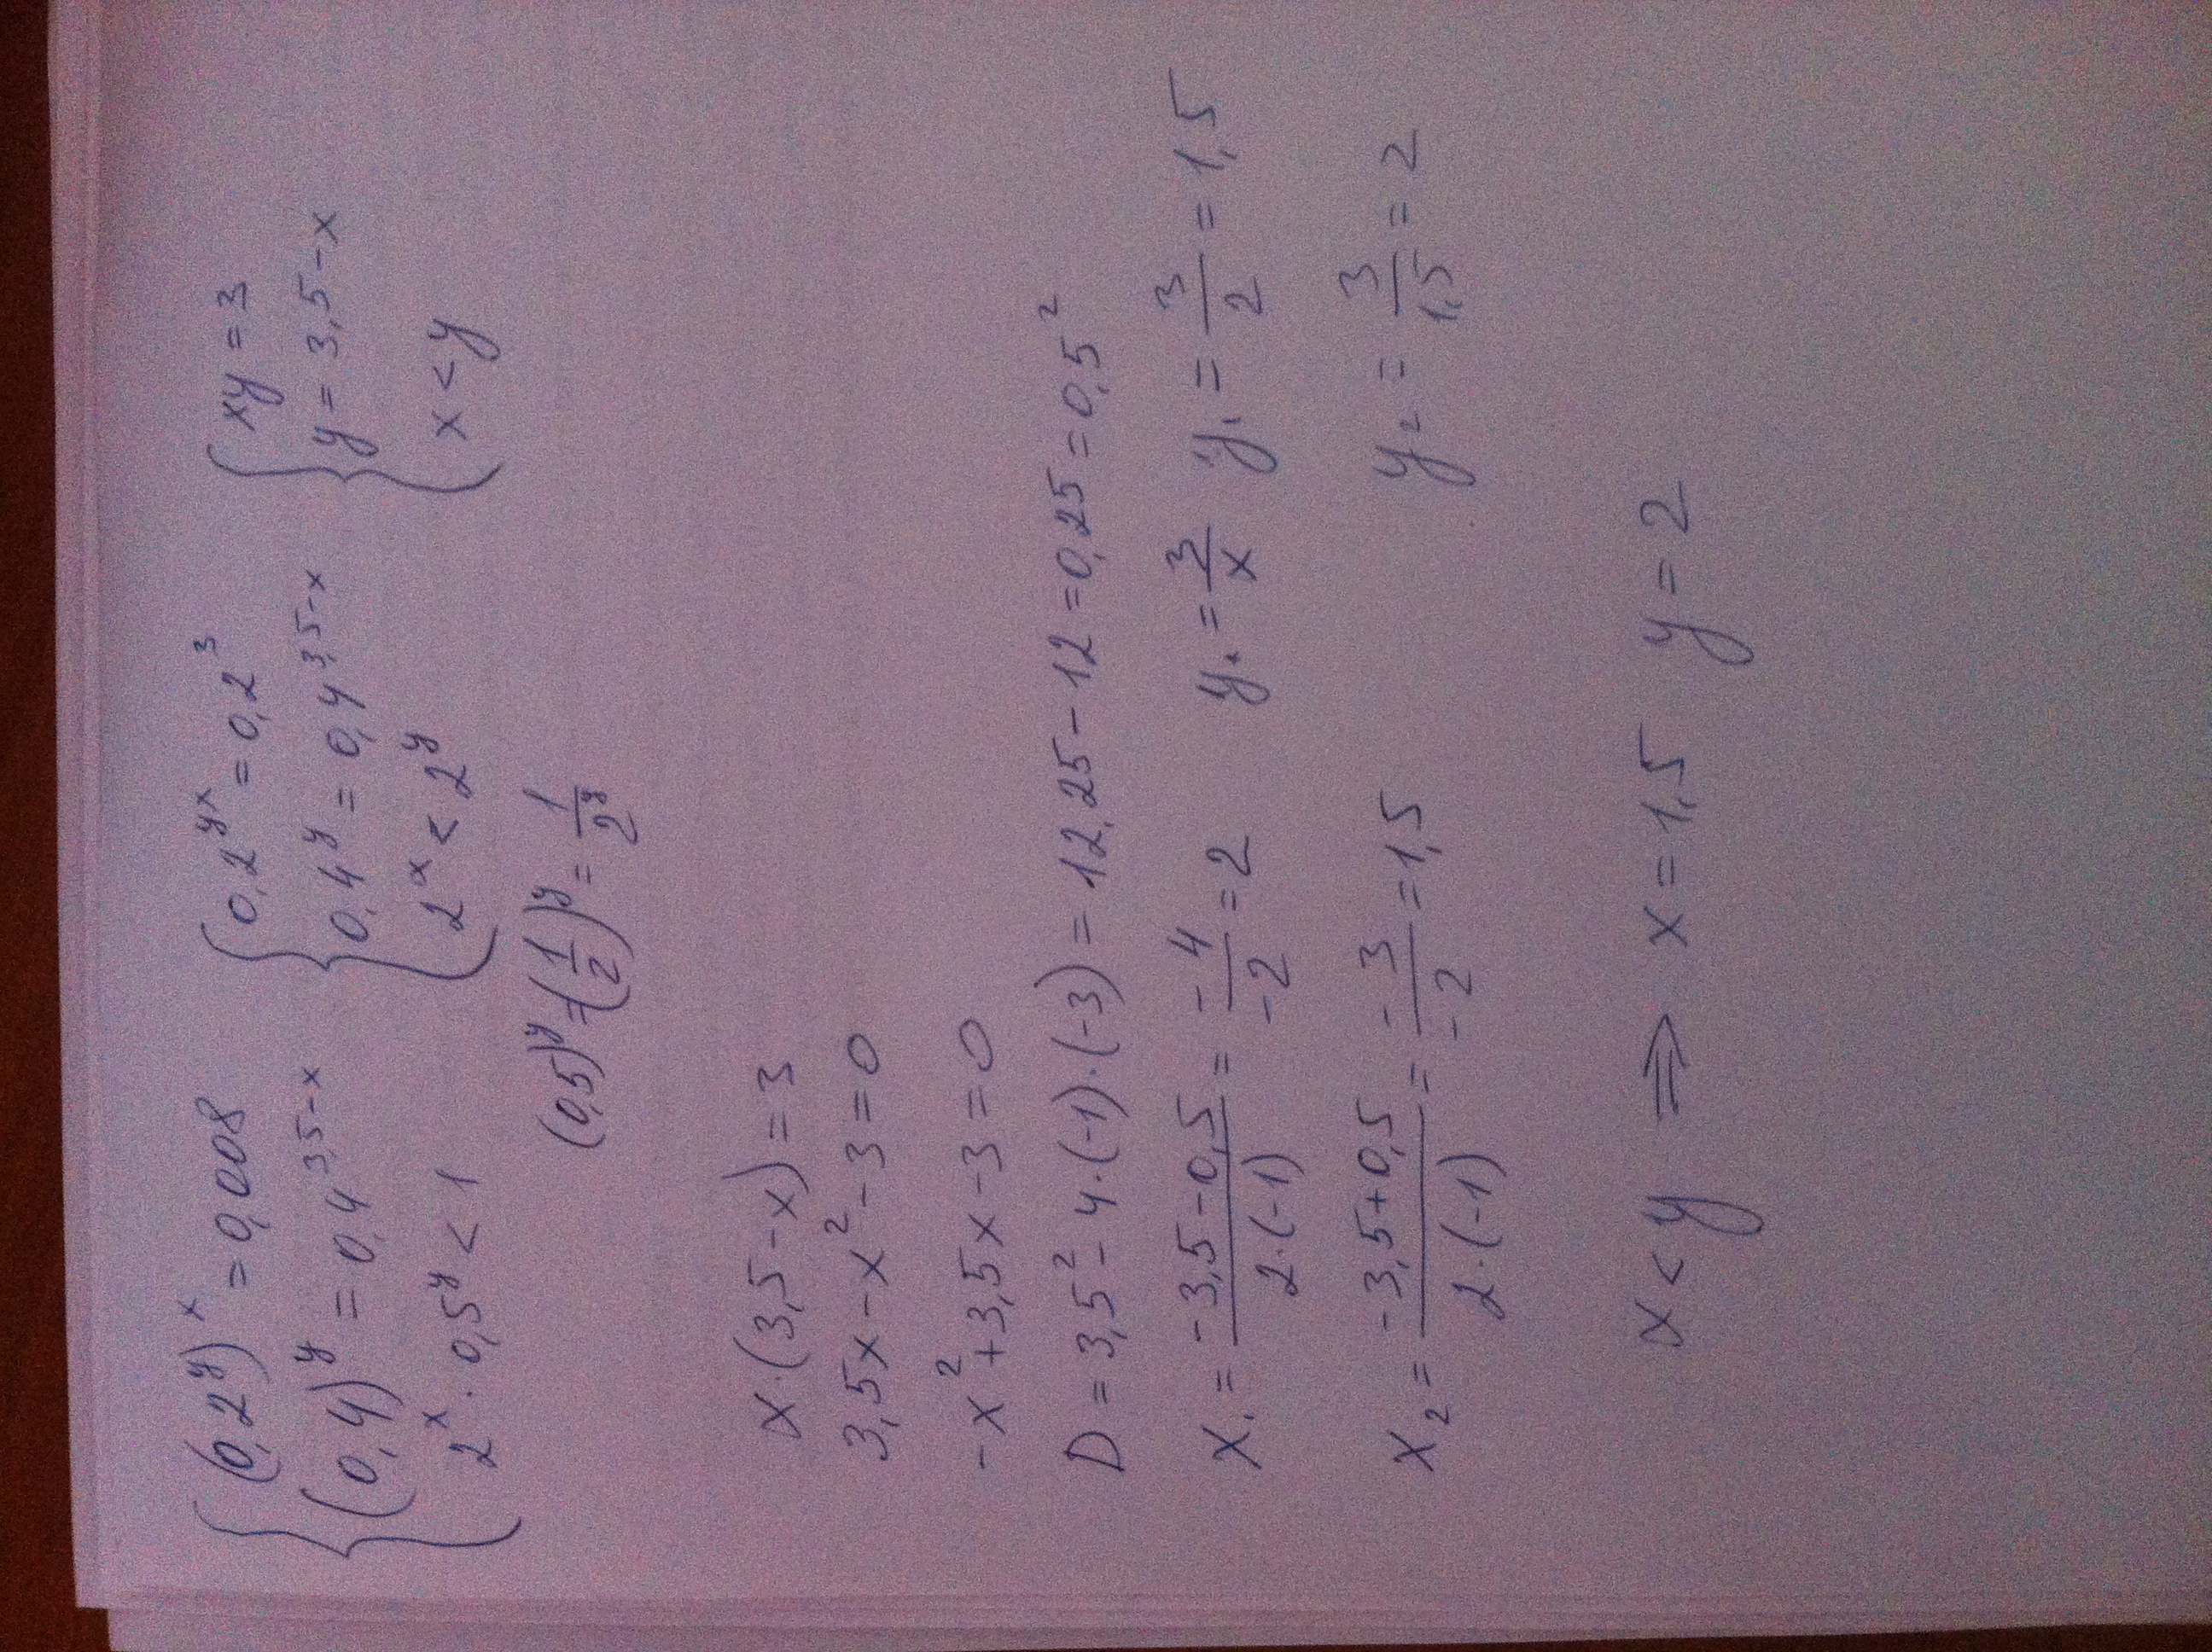 { (0,2^y)^x = 0,008 { 0,2^yx = 0,2^3 { xy = 3
(0,4)^y = 0,4^3,5-x 0,4^y = 0,4^3,5-x y = 3,5-x
2^x · 0,5^y < 1 2^x < 2^y x < y
(0,5)^y = (1/2)^y = 1/2^y
x·(3,5-x) = 3
3,5x - x² - 3 = 0
-x² + 3,5x - 3 = 0
D = 3,5² - 4·(-1)·(-3) = 12,25 - 12 = 0,25 = 0,5²
x₁ = (-3,5-0,5)/(2·(-1)) = -4/-2 = 2 y₁ = 3/x y₁ = 3/2 = 1,5
x₂ = (-3,5+0,5)/(2·(-1)) = -3/-2 = 1,5 y₂ = 3/1,5 = 2
x < y ⇒ x = 1,5 y = 2